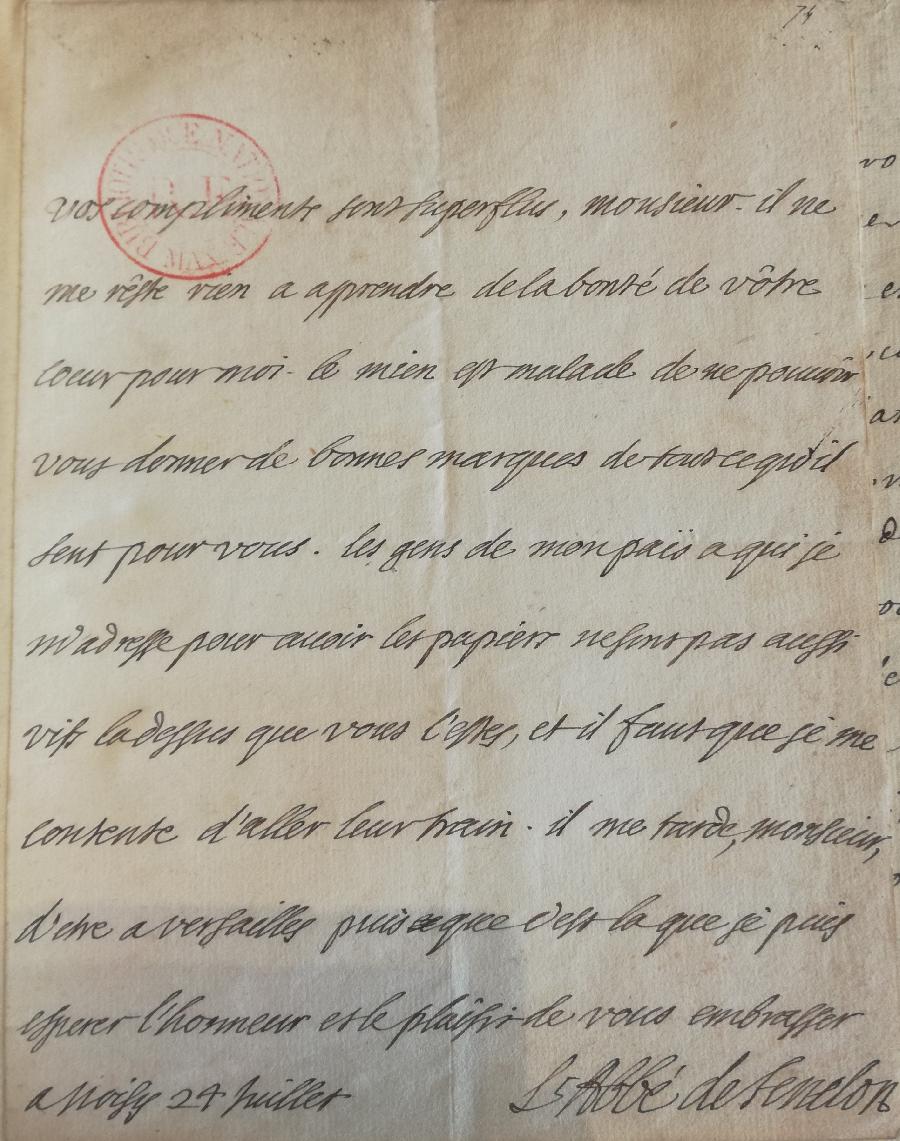 74
vos compliments sont superflus, monsieur. il ne
me rêste rien a apprendre de la bonté de vôtre
coeur pour moi. le mien est malade de ne pouvoir
vous donner de bonnes marques de tout ce qu'il
sent pour vous. les gens de mon païs a qui je
m'adresse pour avoir les papiers ne sont pas aussi
vifs la dessus que vous l'estes, et il faut que je me
contente d'aller leur train. il me tarde, monsieur,
d'etre a versailles puisque c'est la que je puis
esperer l'honneur et le plaisir de vous embrasser
a Noisy 24 Juillet L'Abbé de fenelon